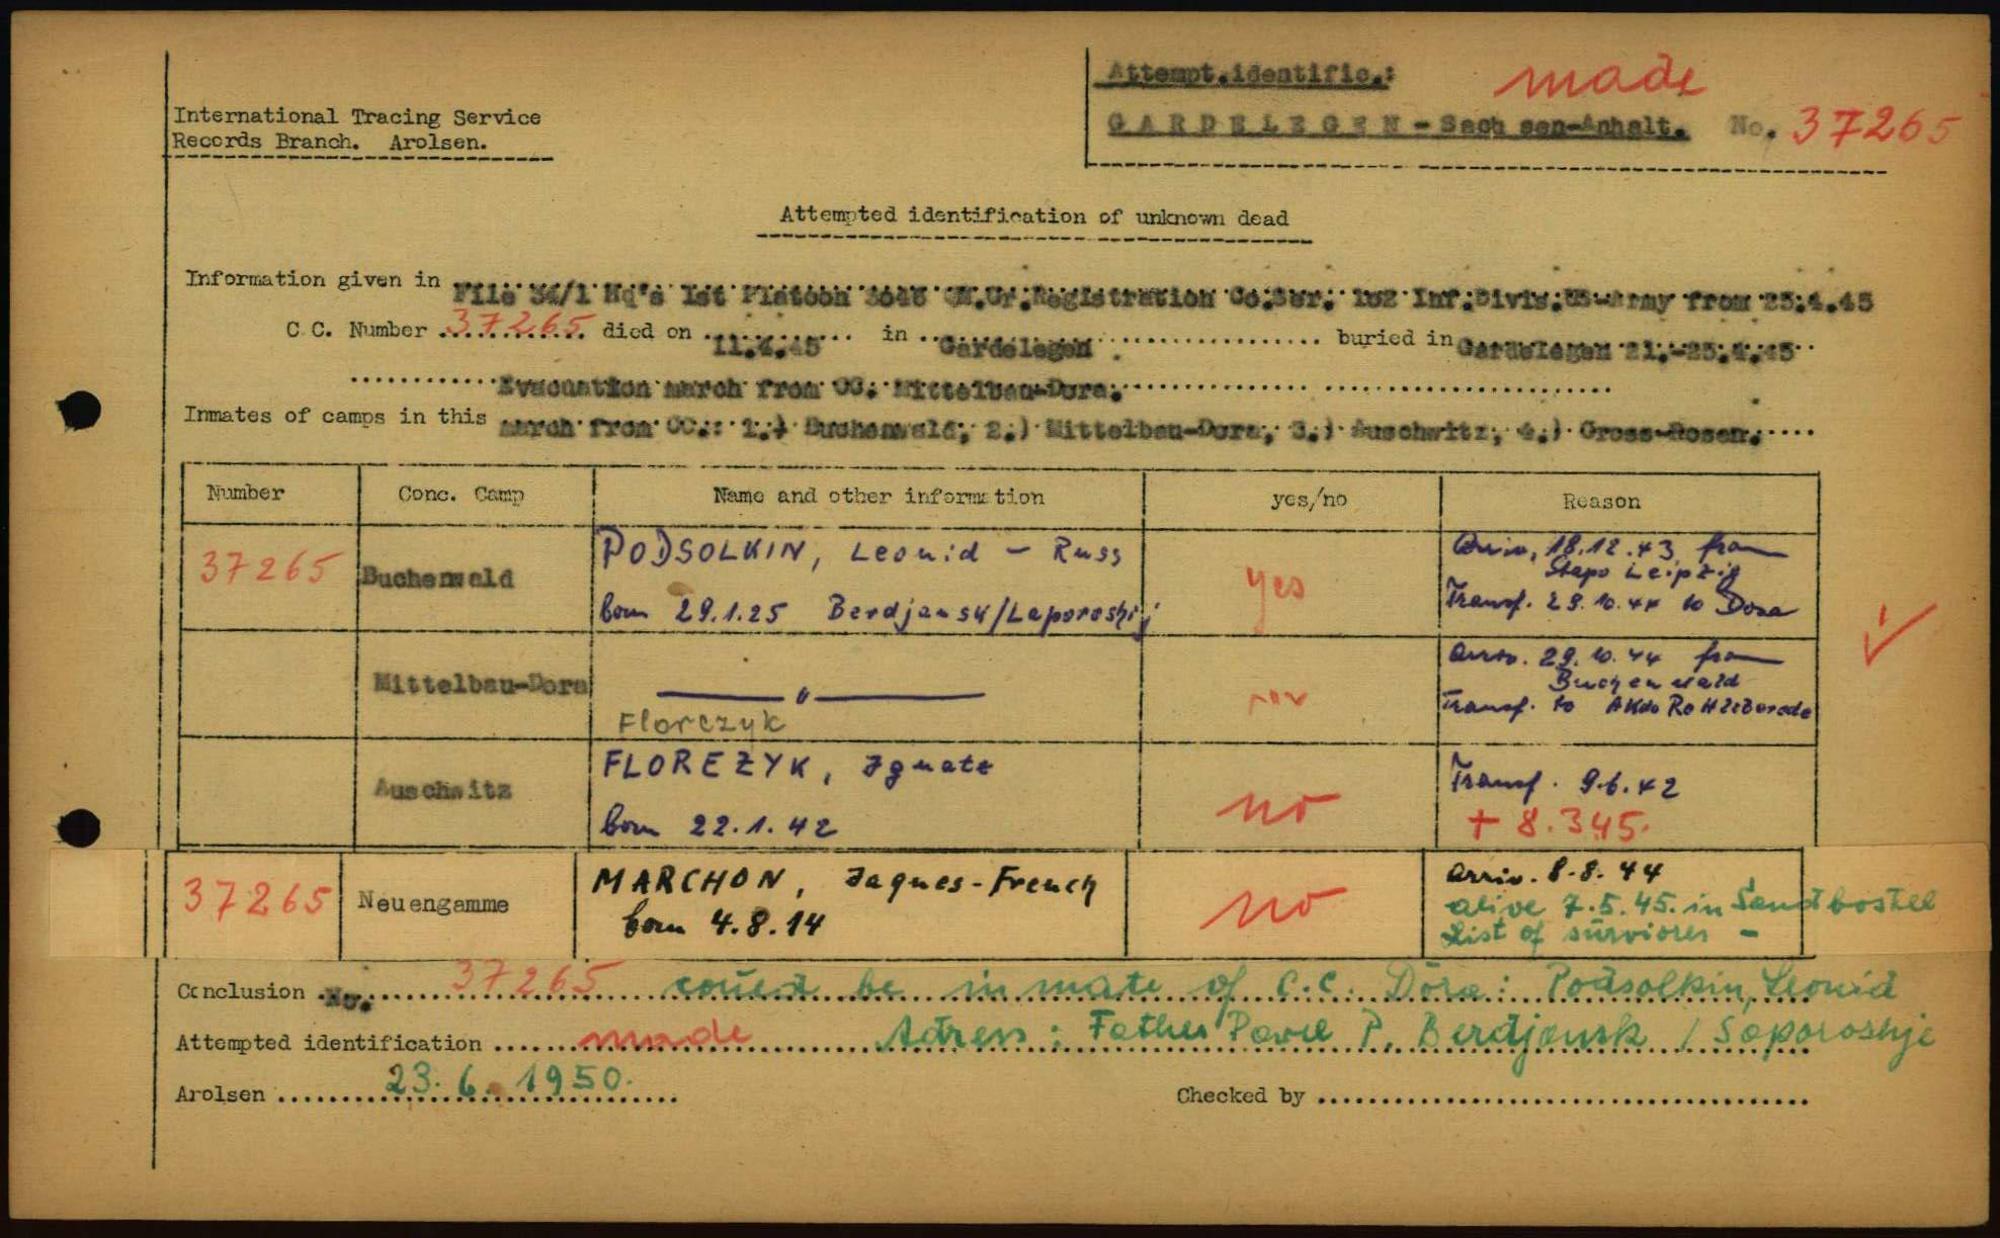 Attempt.identific.: made
International Tracing Service
GARDELEGEN - Sachsen-Anhalt. No. 37265
Records Branch. Arolsen.
Attempted identification of unknown dead
Information given in File 34/1 Hq's 1st Platoon 3048 QM.Gr.Registration Co.Ser. 102 Inf.Divis.US-Army from 25.4.45
C.C. Number 37265 died on 11.4.45 in Gardelegen . buried in Gardelegen 21.-25.4.45
Evacuation march from CC. Mittelbau-Dora.
Inmates of camps in this march from CC.: 1.) Buchenwald, 2.) Mittelbau-Dora, 3.) Auschwitz, 4.) Gross-Rosen.
Number Conc. Camp Name and other information yes/no Reason
37265 Buchenwald PODSOLKIN, Leonid - Russ yes Arriv. 18.12.43 from
Stapo Leipzig
born 29.1.25 Berdjansk/Laporoshij Transf. 29.10.44 to Dora
Mittelbau-Dora — " — Arriv. 29.10.44 from
Buchenwald
Florczyk Transf. to AKdo Rottleberode
Auschwitz FLOREZYK, Ignatz no Transf. 9.6.42
born 22.1.42 + 8.345.
37265 Neuengamme MARCHON, Jaques-French no arriv. 8.8.44
born 4.8.14 alive 7.5.45. in Sandbostel
List of surviores -
Conclusion No. 37265 coued be inmate of C.C. Dora: Podsolkin, Leonid
Attempted identification made Adress: Father Pavel P. Berdjansk / Saporoshje
Arolsen 23. 6. 1950. Checked by